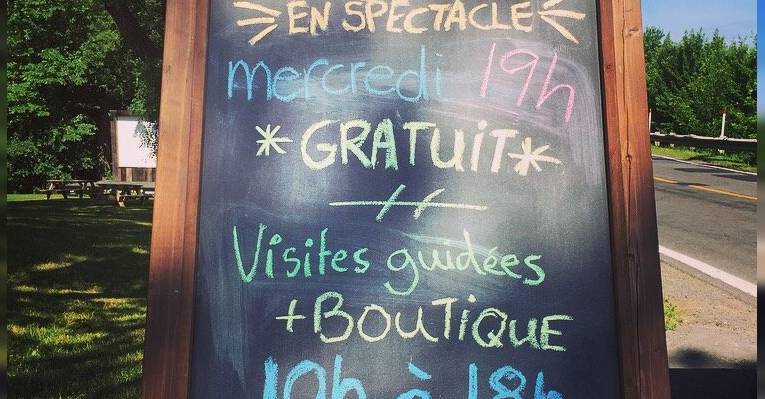 EN SPECTACLE
mercredi 19h
*GRATUIT*
Visites guidées
+ BOUTIQUE
10h à 18h